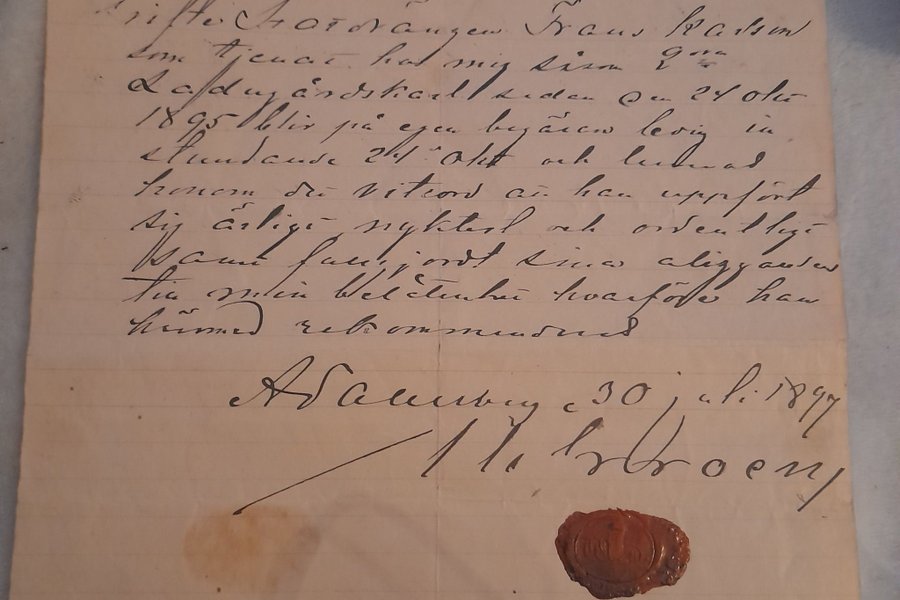 gifte Statdrängen Frans Karlson
som tjenat hos mig såsom
Ladugårdskarl sedan den 24 Okt
1895 blir på egen begäran ledig in
stundande 24 Okt och lemnas
honom det vitsord att han uppfört
sig ärligt nyktert och ordentligt
samt fullgjordt sina åligganden
till min belåtenhet hvarföre han
härmed rekommenderas
30 juli 1897